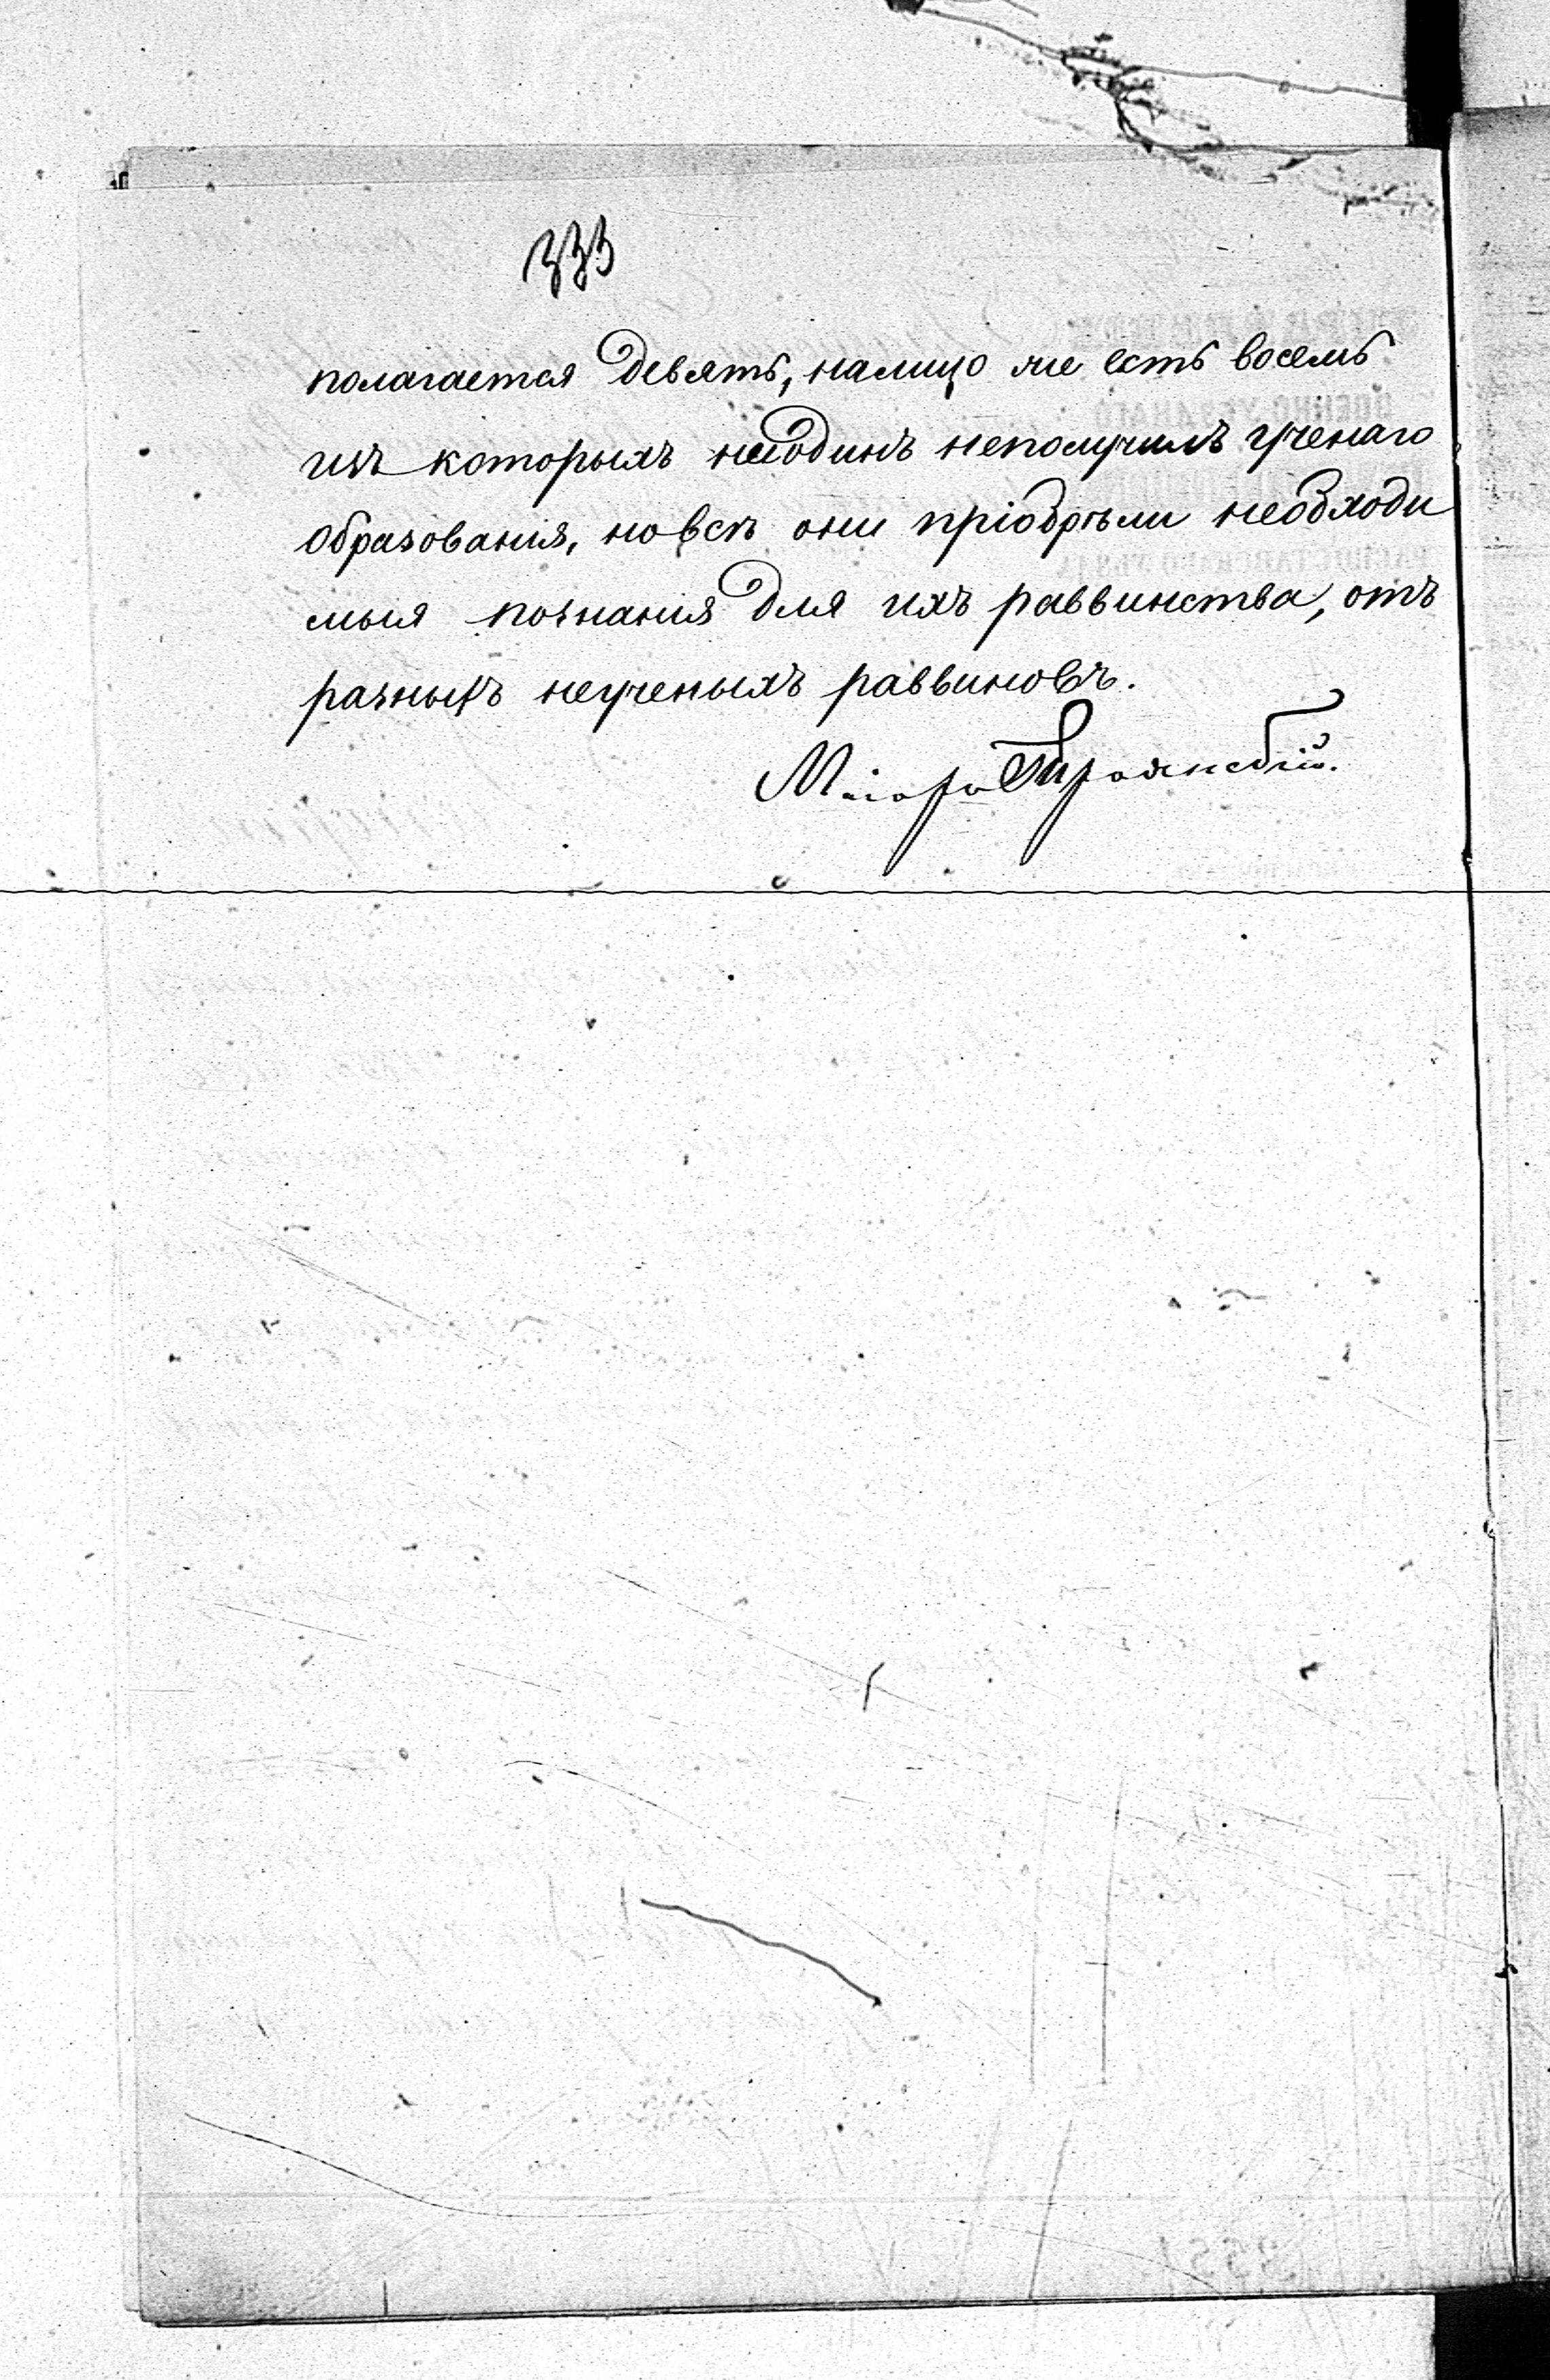 333
полагается девять, налицо же есть восемь
изъ которыхъ ниодинъ неполучилъ ученаго
образованія, но всѣ они пріобрѣли необходи
мыя познанія для ихъ раввинства, отъ
разныхъ неученыхъ раввиновъ.
Маіоръ